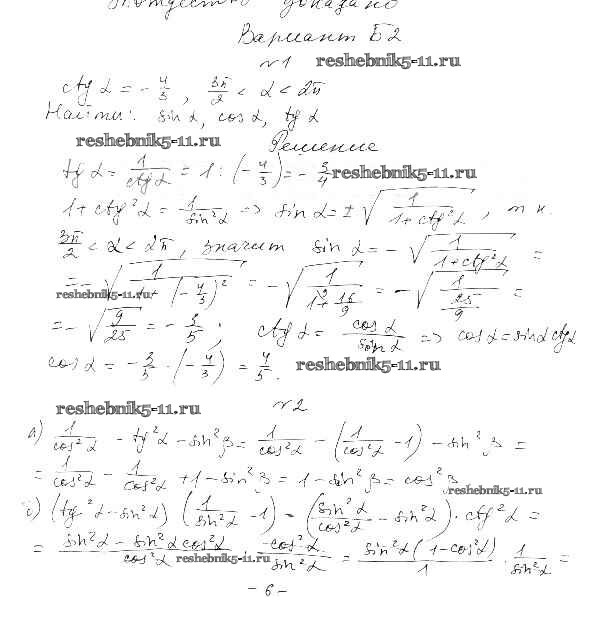 тождество доказано
Вариант Б2
№1 reshebnik5-11.ru
ctg α = - 4/3, 3π/2 < α < 2π
Найти: sin α, cos α, tg α
reshebnik5-11.ru Решение
tg α = 1/ctg α = 1 : (- 4/3) = - 3/4 reshebnik5-11.ru
1 + ctg²α = 1/sin²α => sin α = ± √(1/(1+ctg²α)), т к.
3π/2 < α < 2π, значит sin α = - √(1/(1+ctg²α)) =
= - √(1/(1+(-4/3)²)) = - √(1/(1+16/9)) = - √(1/(25/9)) =
reshebnik5-11.ru
= - √(9/25) = - 3/5; ctg α = cos α/sin α => cos α = sin α ctg α
cos α = - 3/5 · (- 4/3) = 4/5. reshebnik5-11.ru
reshebnik5-11.ru №2
а) 1/cos²α - tg²α - sin²β = 1/cos²α - (1/cos²α - 1) - sin²β =
= 1/cos²α - 1/cos²α + 1 - sin²β = 1 - sin²β = cos²β
reshebnik5-11.ru
(tg²α - sin²α) (1/sin²α - 1) = (sin²α/cos²α - sin²α) · ctg²α =
= (sin²α - sin²α cos²α)/cos²α · cos²α/sin²α = sin²α(1-cos²α)/1 · 1/sin²α =
reshebnik5-11.ru
- 6 -